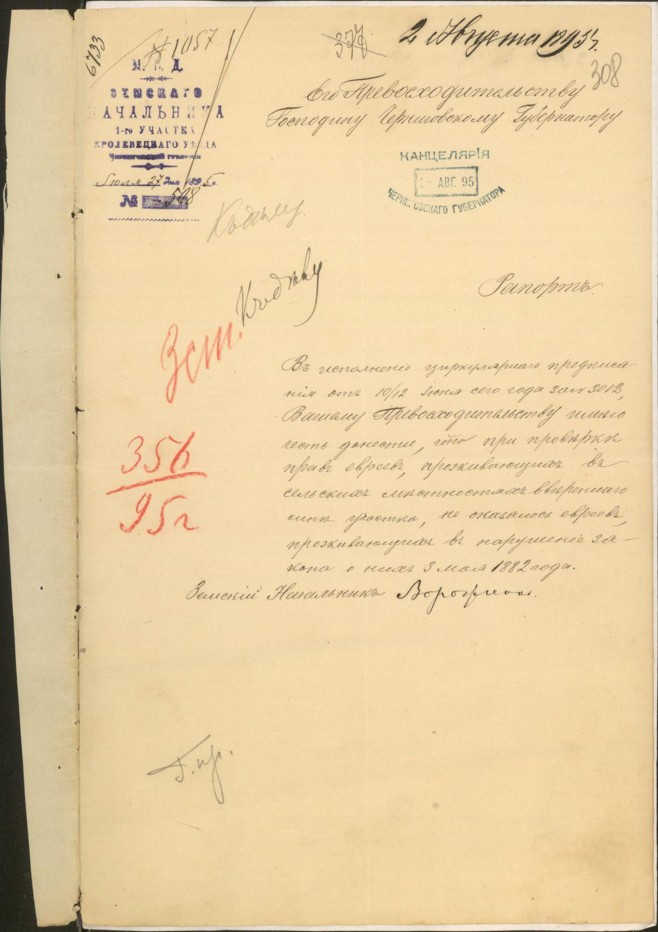 6733
№ 1057
377
2 Августа 1895 г.
308
М. В. Д.
ЗЕМСКАГО
НАЧАЛЬНИКА
1-го УЧАСТКА
КРОЛЕВЕЦКАГО УѢЗДА
Черниговской губерніи
Іюля 27 дня 1895 г.
№ 568
Его Превосходительству
Господину Черниговскому Губернатору
КАНЦЕЛЯРІЯ
1- АВГ. 95
ЧЕРНИГОВСКАГО ГУБЕРНАТОРА
Къ дѣлу
Къ дѣлу
Рапортъ
Зст.
356
95 г
Въ исполненіе циркулярнаго предписа-
нія отъ 10/12 Іюня сего года за № 3012,
Вашему Превосходительству имѣю
честь донести, что при провѣркѣ
правъ евреевъ, проживающихъ въ
сельскихъ мѣстностяхъ ввѣреннаго
мнѣ участка, не оказалось евреевъ,
проживающихъ въ нарушеніе за-
кона о нихъ 3 мая 1882 года.
Земскій Начальникъ
Г. пр.